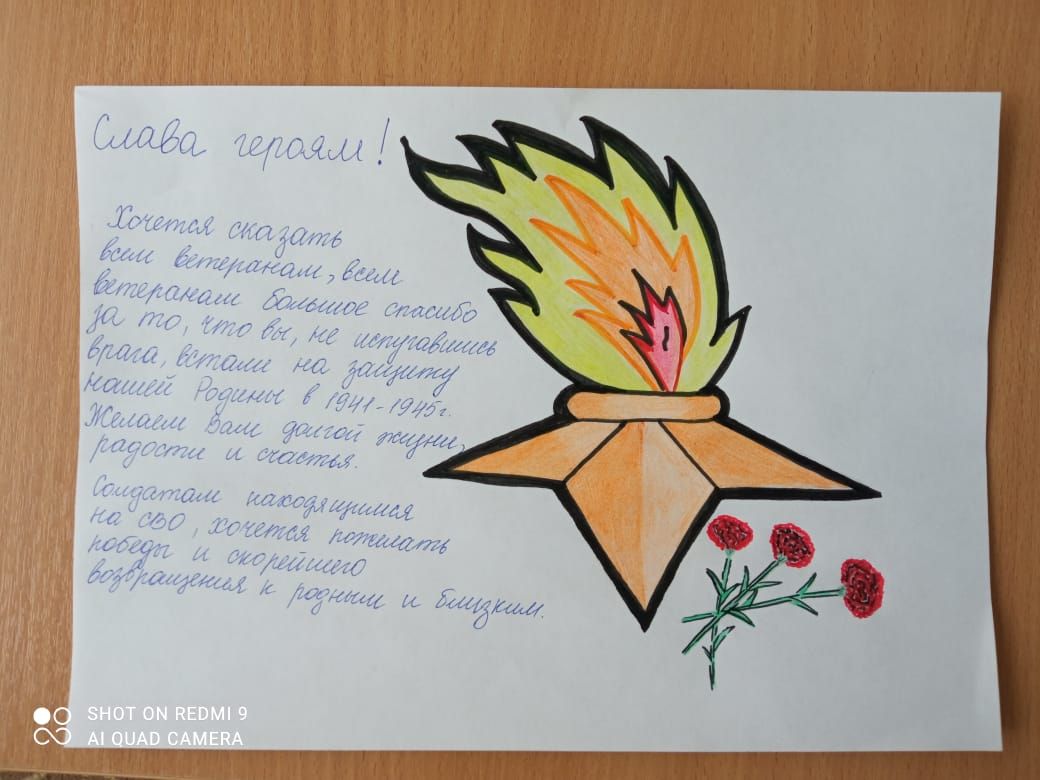 Слава героям!
Хочется сказать
всем ветеранам, всем
ветеранам большое спасибо
за то, что вы, не испугавшись
врага, встали на защиту
нашей Родины в 1941-1945г.
Желаем Вам долгой жизни,
радости и счастья.
Солдатам находящимся
на СВО, хочется пожелать
победы и скорейшего
возвращения к родным и близким.
SHOT ON REDMI 9
AI QUAD CAMERA